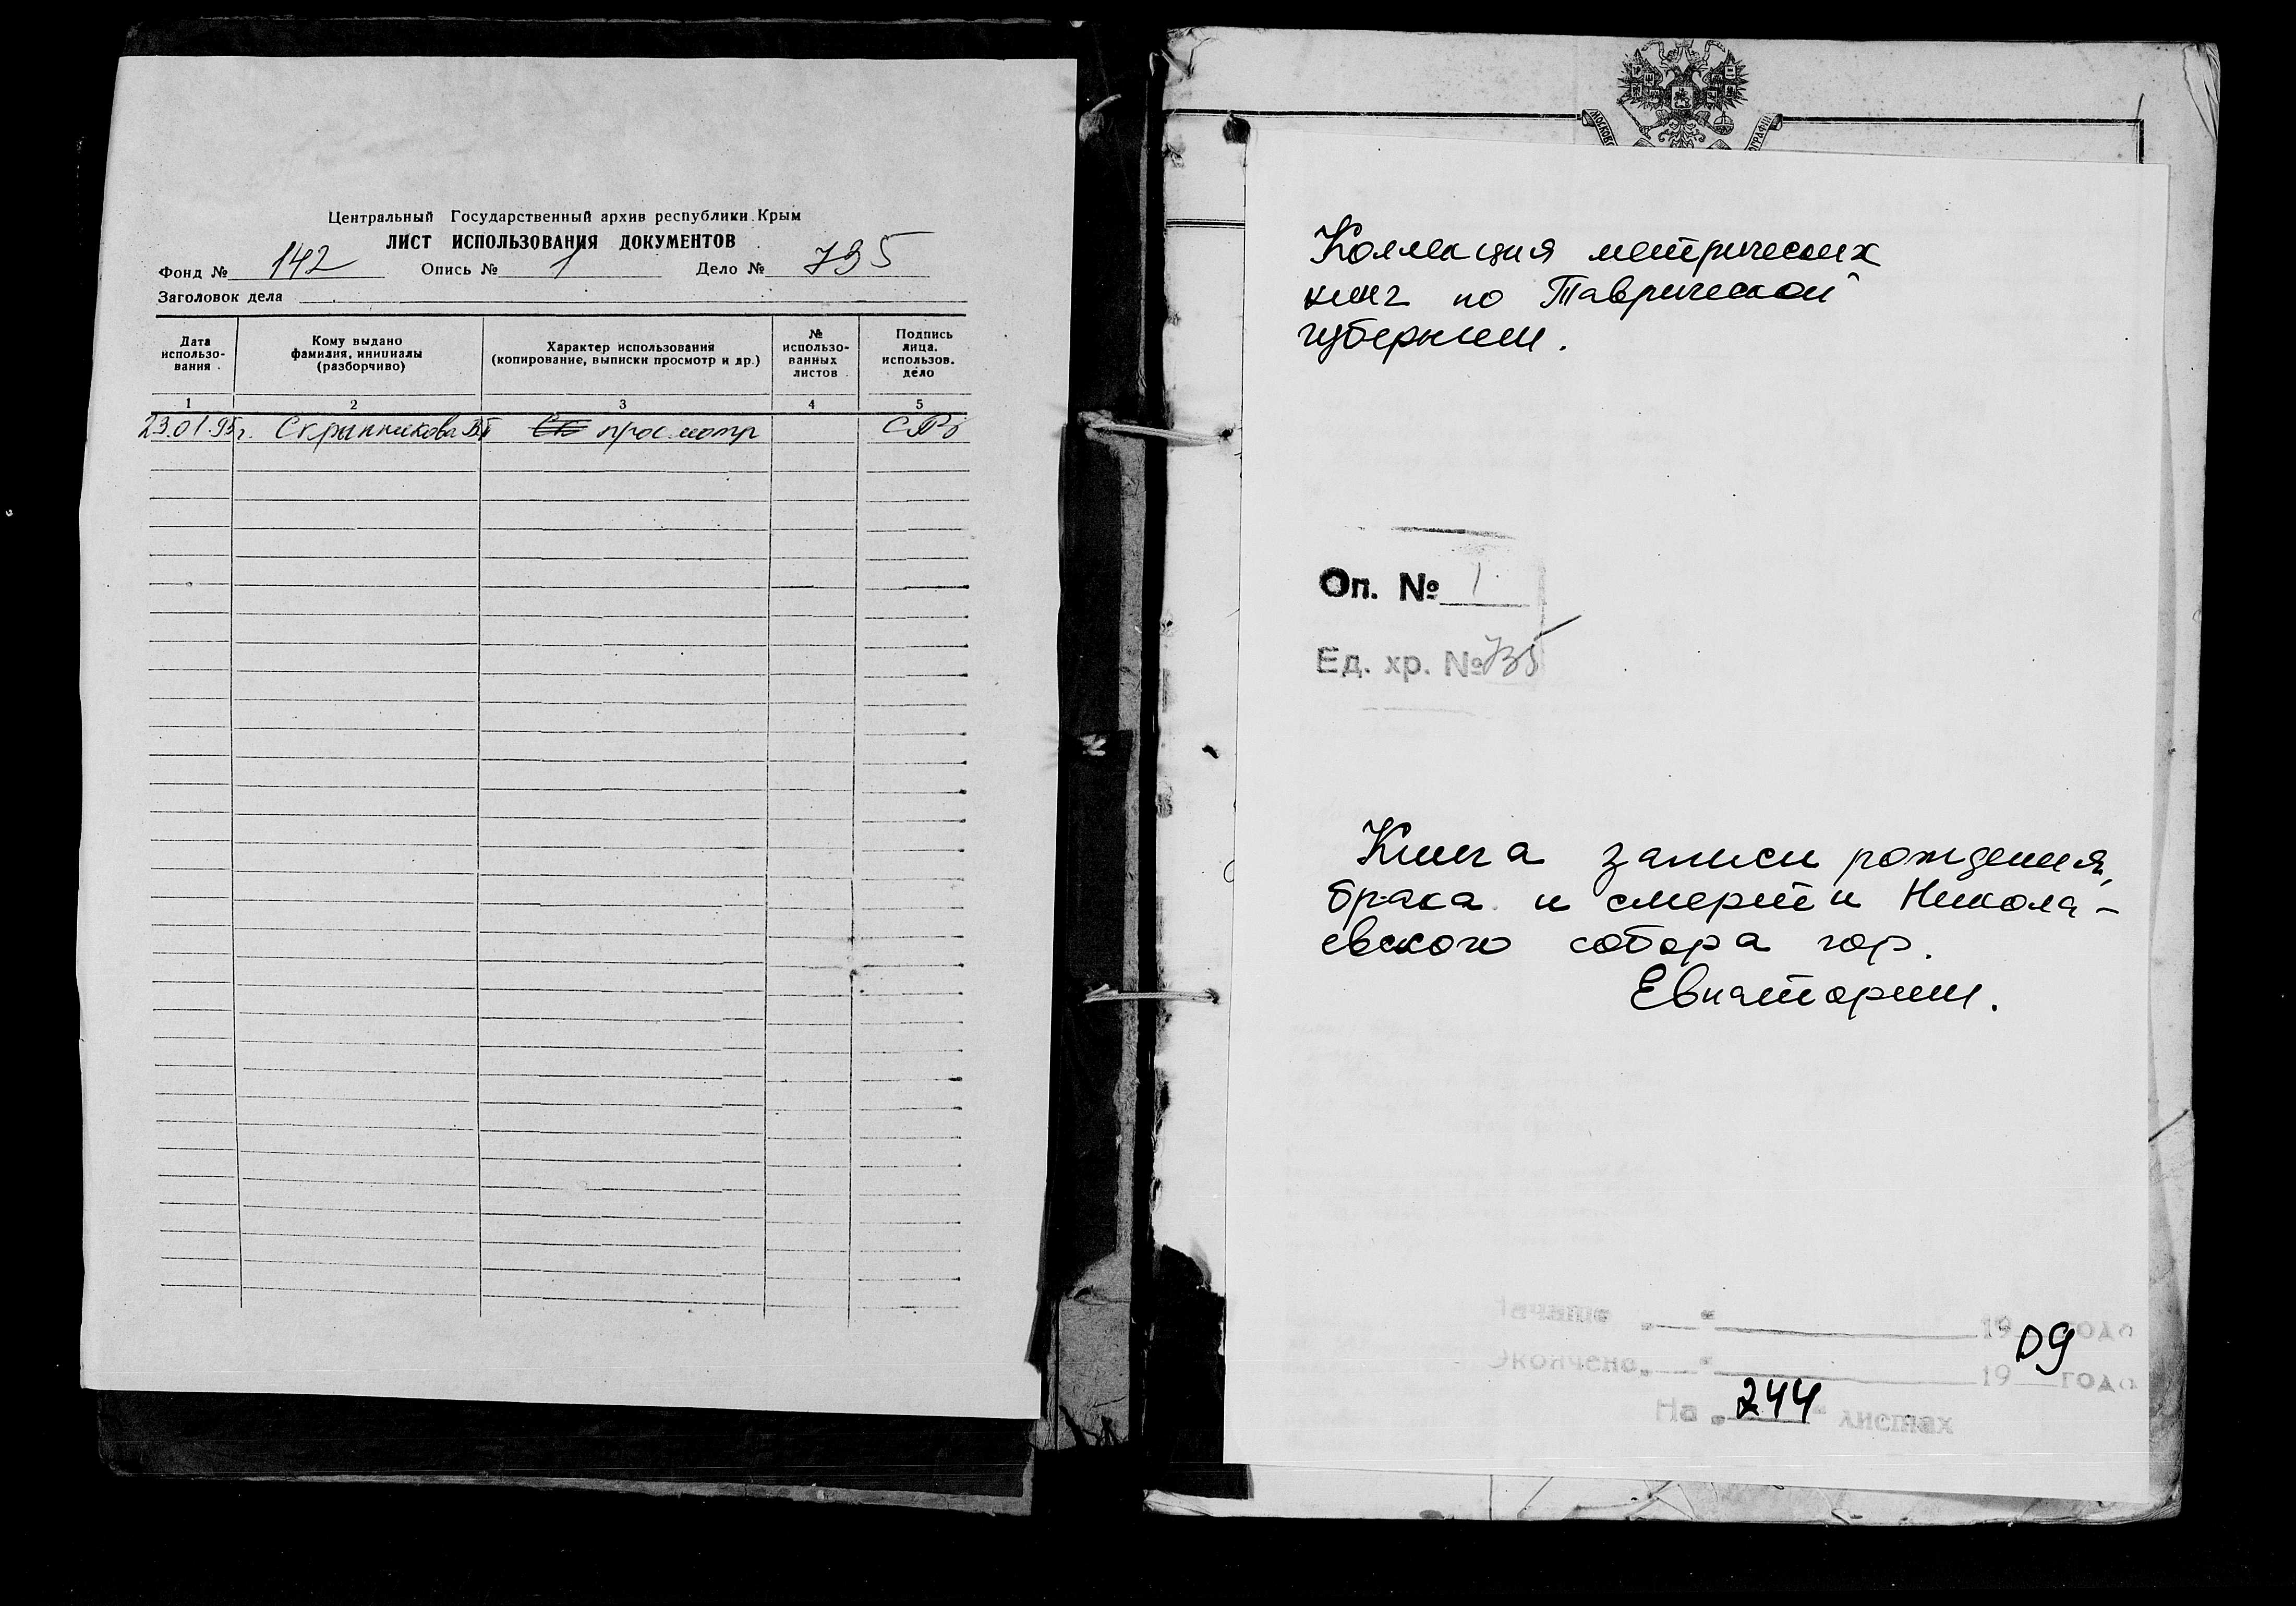 Центральный Государственный архив республики Крым
ЛИСТ ИСПОЛЬЗОВАНИЯ ДОКУМЕНТОВ
Фонд № 142 Опись № 1 Дело № 795
Заголовок дела
Дата использо-вания
Кому выдано фамилия, инициалы (разборчиво)
Характер использования (копирование, выписки просмотр и др.)
№ использо-ванных листов
Подпись лица. использов. дело
1 2 3 4 5
23.01.95г. Скрынникова просмотр
Коллекция метрических
книг по Таврической
губернии.
Оп. № 1
Ед. хр. № 795
Книга записи рождения,
брака и смерти Никола-
евского собора гор.
Евпатории.
Начато „ “ 19 года
09
Окончено „ “ 19 года
На „ 244 “ листах